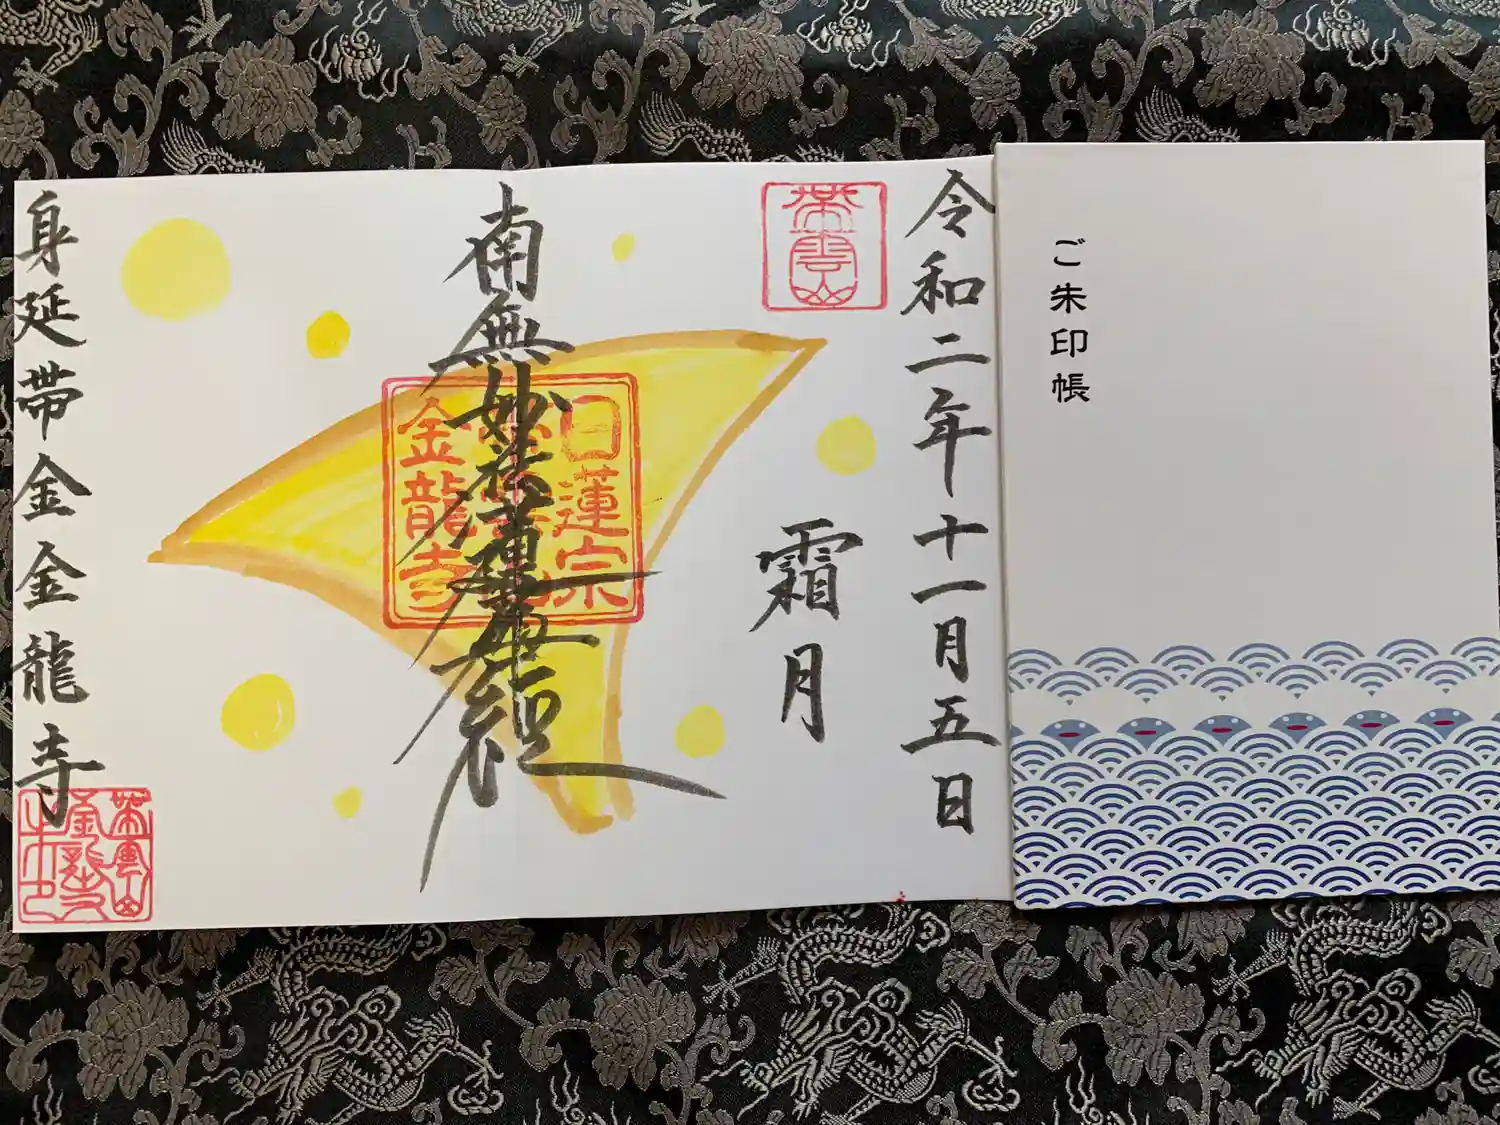 ご朱印帳
令和二年十一月五日
霜月
帯雲山
南無妙法蓮華経
日蓮宗
金龍寺
身延帯金金龍寺